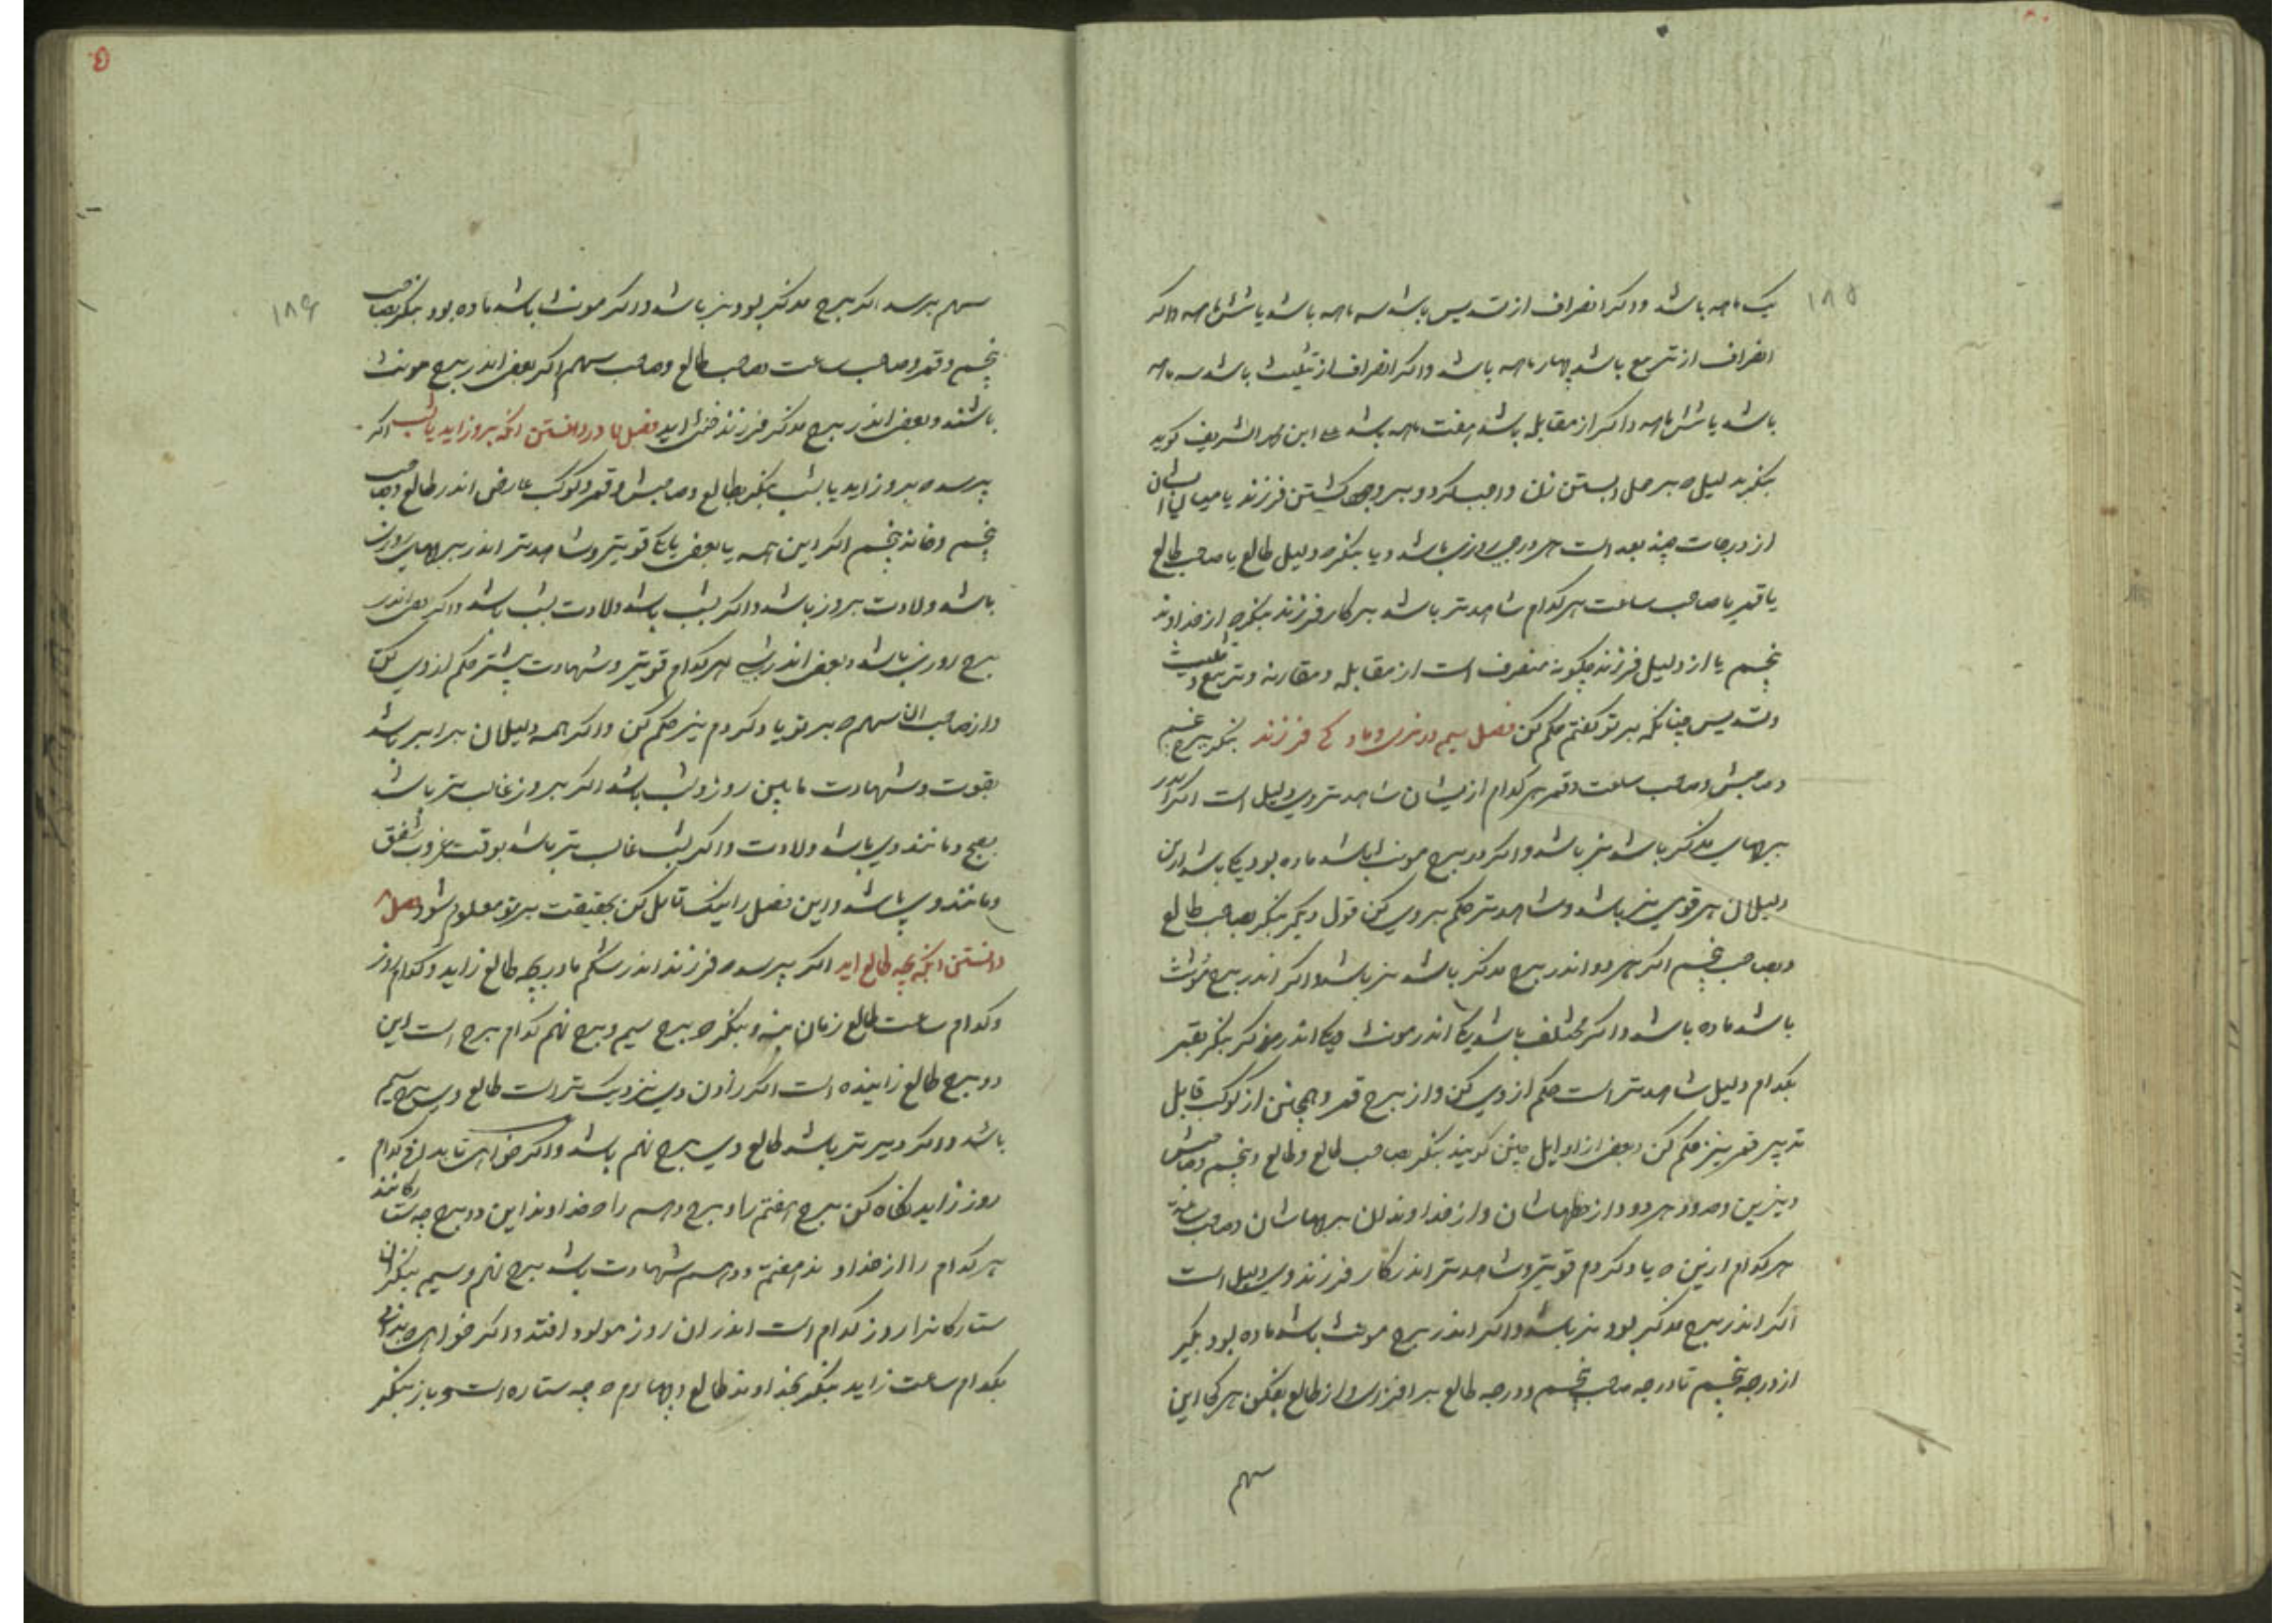 ۱۸۵
یک ماهه باشد و اگر انصراف از تسدیس باشد سه ماهه باشد یا شش ماهه و اگر
انصراف از تربیع باشد چهار ماهه باشد و اگر انصراف از تثلیث باشد سه ماهه
باشد یا شش ماهه و اگر از مقابله باشد هفت ماهه باشد ابن الشریف گوید
بنگر بدلیل که بر حمل و بستن زن واجب کردد و بیرون گشتن فرزند یا میان ایشان
از درجات چند بعد است هر درجه روزی باشد و یا بنگر که دلیل طالع یا صاحب طالع
یا قمر یا صاحب ساعت هر کدام شاهدتر باشد بر کار فرزند بنگر که از خداوند
پنجم یا از دلیل فرزند چگونه منصرف است از مقابله و مقارنه و تربیع و تثلیث
و تسدیس چنانکه بر تو گفتم حکم کن فصل سیم در نری و مادگی فرزند بنگر ببرج پنجم
و صاحبش و صاحب ساعت و قمر هر کدام ازیشان شاهدتر وی دلیل است اگر اندر
برجهای مذکر باشد نر باشد و اگر در برج مونث باشد ماده بود یکی باشد ازین
دلیلان هر قوی تر باشد و شاهدتر حکم بر وی کن قول دیگر بنگر بصاحب طالع
و بصاحب پنجم اگر هر دو اندر برج مذکر باشد نر باشد و اگر اندر برج مونث
باشد ماده باشد و اگر مختلف باشد یکی اندر مونث و یکی اندر مذکر بنگر بقمر
بکدام دلیل شاهدتر است حکم از وی کن و از برج قمر و همچنین از کوکب قابل
تدبیر قمر نیز حکم کن و بعضی از اوایل چنین گویند بنگر بصاحب طالع و طالع و پنجم و صاحبش
و نیرین و حدود هر دو و از خطهاشان و از خداوندان برجهاشان و صاحب ساعت
هر کدام ازین که یاد کردم قوی‌تر و شاهدتر اندر کار فرزند وی دلیل است
اگر اندر برج مذکر بود نر باشد و اگر اندر برج مونث باشد ماده بود بگیر
از درجه پنجم تا درجه صاحب پنجم و درجه طالع بر افزای و از طالع بفکن هر کجا این
سهم
۱۸۶
سهم برسد اگر برج مذکر بود نر باشد و اگر مونث باشد ماده بود بنگر بصاحب
پنجم و قمر و صاحب ساعت و صاحب طالع و صاحب سهم اگر بعضی اندر برج مونث
باشند و بعضی اندر برج مذکر فرزند خنثی اید فصل در دانستن انکه بروز اید یا بشب اگر
پرسد که بروز اید یا بشب بنگر بطالع و صاحبش و قمر و کوکب عارض اندر طالع و صاحب
پنجم و خانه پنجم اگر این همه یا بعضی یا یکی قوی‌تر و شاهدتر اندر برجهای روزی
باشد ولادت بروز باشد و اگر بشب باشد ولادت بشب باشد و اگر بعضی اندر
برج روزی باشد و بعضی اندر شبی هر کدام قوی‌تر و شهادت بیشتر حکم از وی کن
و از صاحب ان سهم که بر تو یاد کردم نیز حکم کن و اگر همه دلیلان برابر باشد
بقوت و شهادت مابین روز و شب باشد اگر بروز غالب تر باشد
بصبح و مانند وی باشد ولادت و اگر بشب غالب تر باشد بوقت غروب شفق
و مانند وی باشد و این فصل را نیک تامل کن بحقیقت بر تو معلوم شود فصل
دانستن انکه بچه طالع اید اگر پرسد که فرزند اندر شکم مادر بچه طالع زاید و کدام روز
و کدام ساعت طالع زمان بنه و بنگر که برج سیم و برج نهم کدام برج است این
دو برج طالع زاینده است اگر زادن وی نزدیک تر است طالع وی برج سیم
باشد و اگر دیرتر باشد طالع وی برج نهم باشد و اگر خواهی تا بدانی کدام
روز زاید نگاه کن برج هفتم را و برج دهم را که خداوند این دو برج چه ستارگانند
هر کدام را از خداوند هفتم و دهم شهادت باشد ببرج نهم و سیم بنگر ان
ستارگانرا روز کدام است اندر ان روز مولود افتد و اگر خواهی که بدانی
بکدام ساعت زاید بنگر بخداوند طالع و چهارم که چه ستاره است و باز بنگر